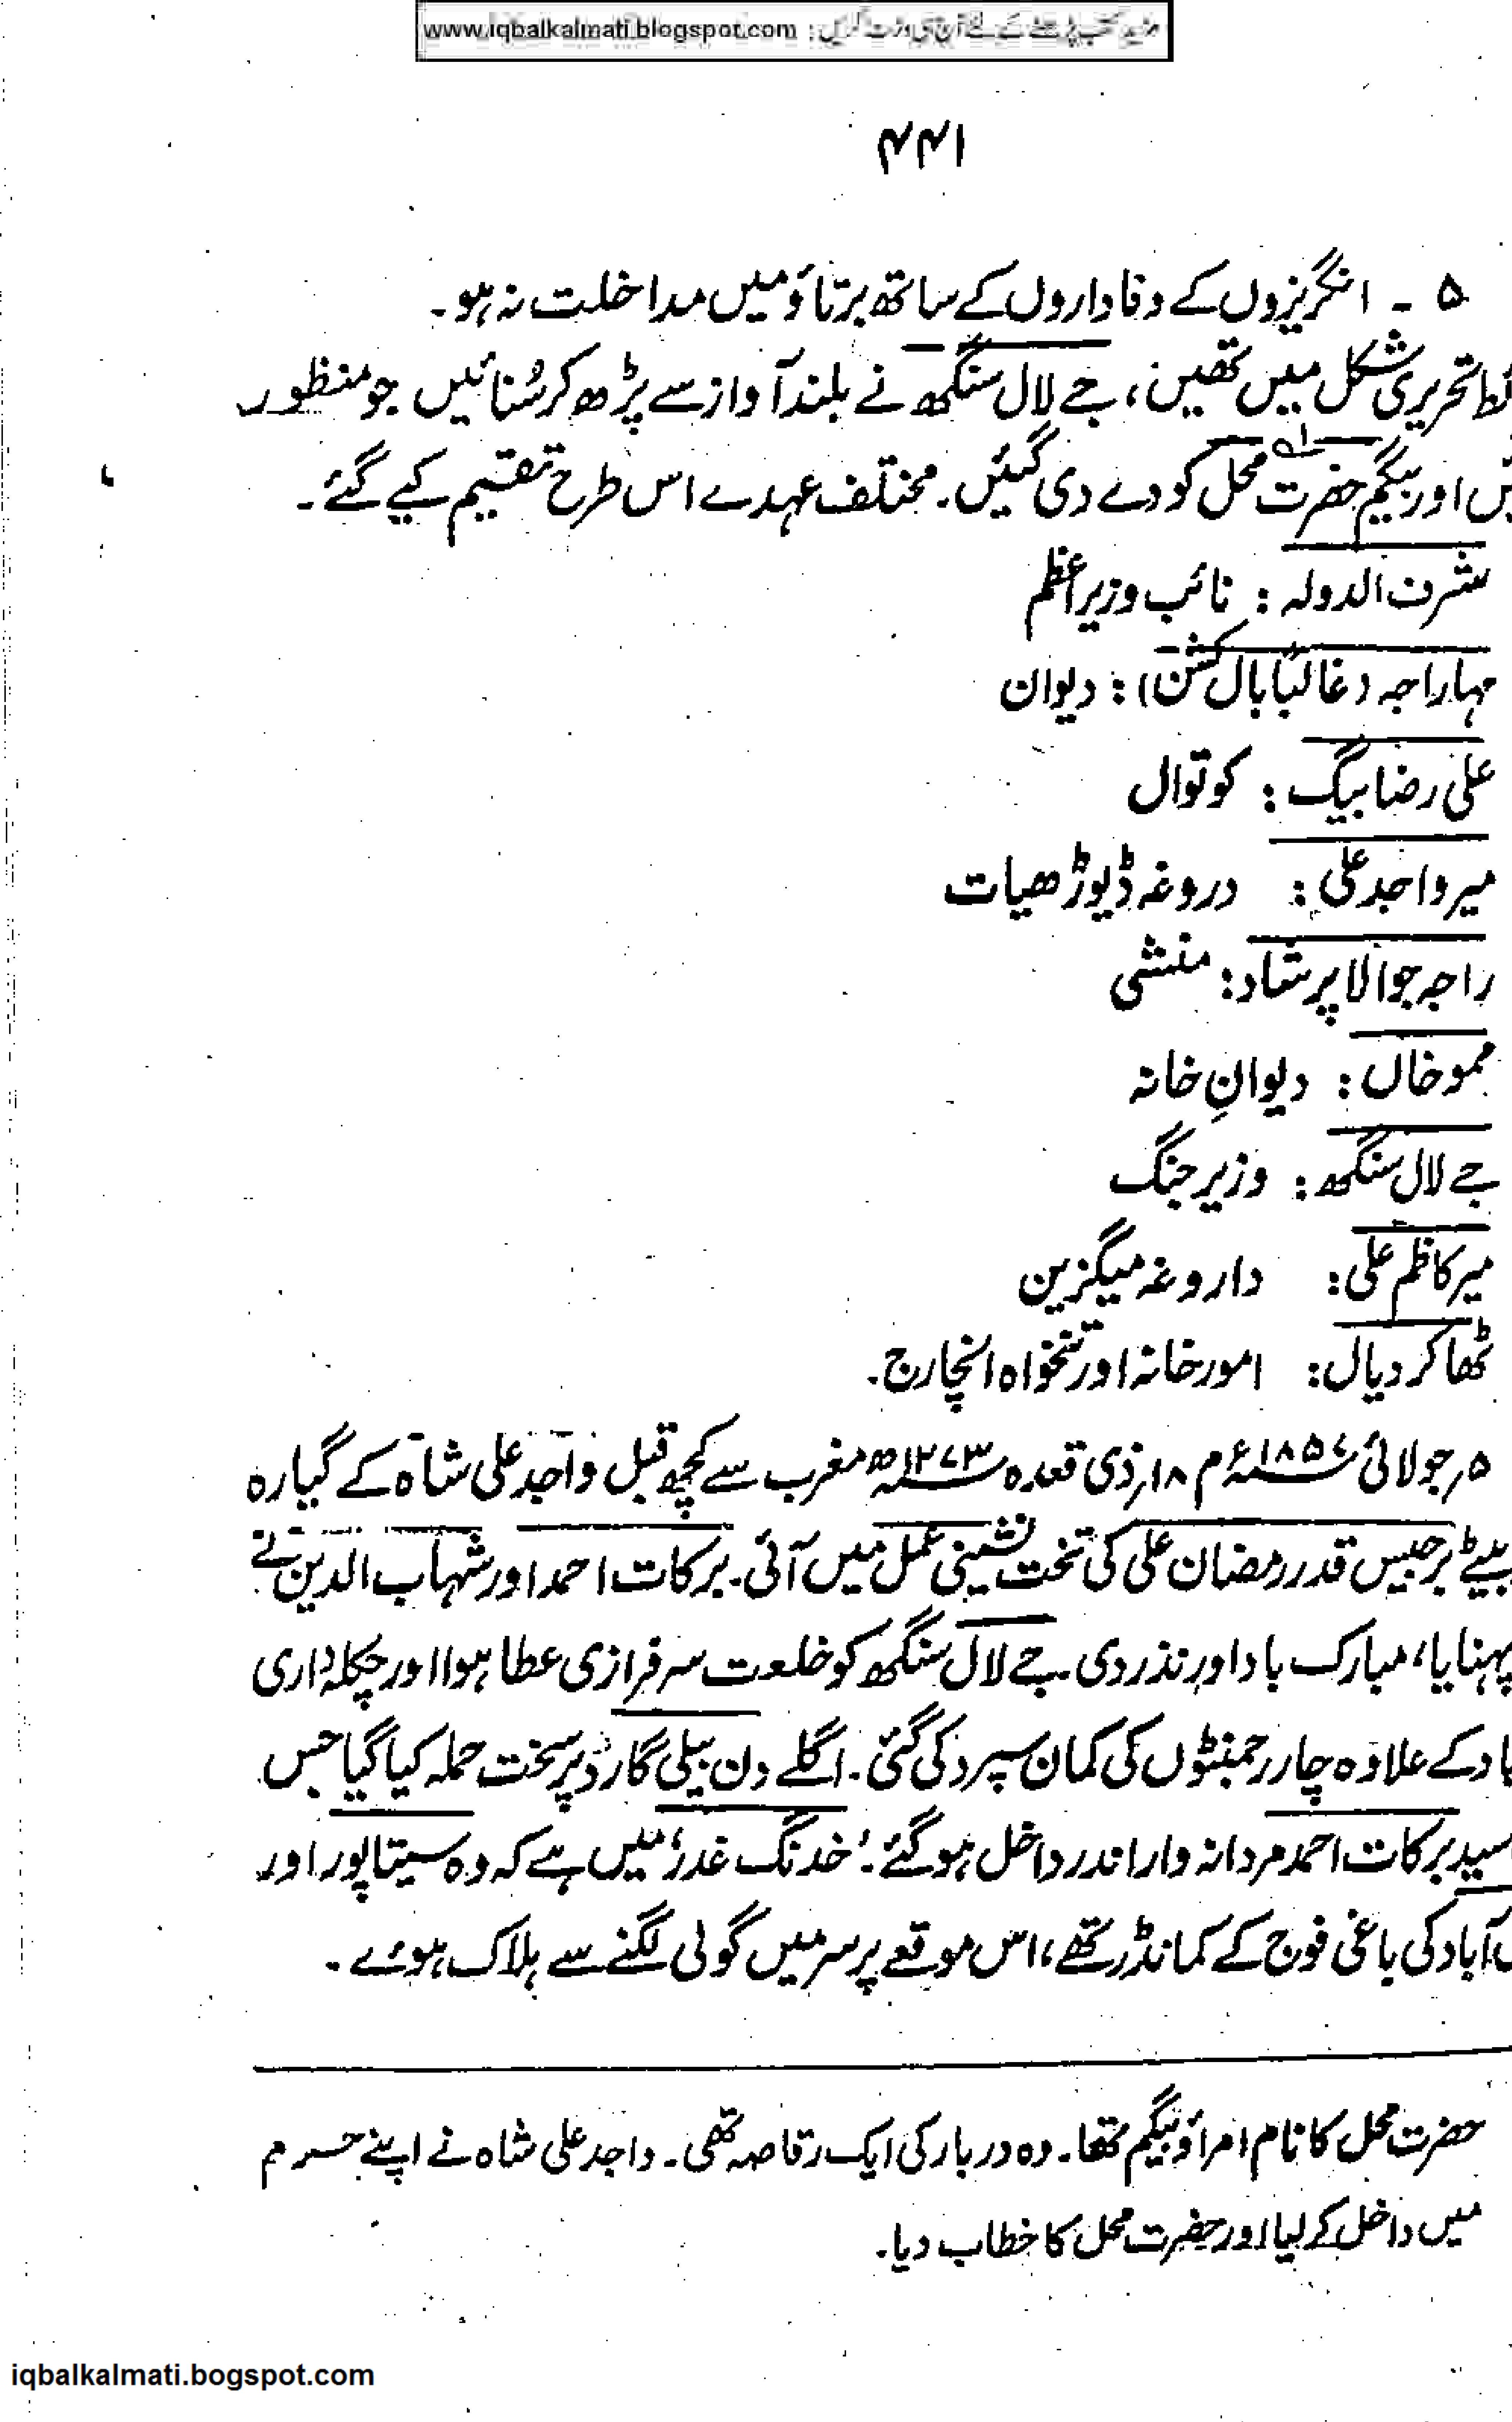 مزید کتب پڑھنے کے لئے آج ہی وزٹ کریں : www.iqbalkalmati.blogspot.com
۴۴۱
۵ ۔ انگریزوں کے وفاداروں کے ساتھ برتاؤ میں مداخلت نہ ہو۔
تحریری شکل میں تھیں، جے لال سنگھ نے بلند آواز سے پڑھ کر سُنائیں جو منظور
اور بیگم حضرت محل کو دے دی گئیں۔ مختلف عہدے اس طرح تقسیم کیے گئے۔
شرف الدولہ : نائب وزیر اعظم
مہاراجہ (غالباً بال کشن) : دیوان
علی رضا بیگ : کوتوال
میر واجد علی : دروغہ ڈیوڑھیات
راجہ جوالا پرشاد : منشی
ممو خاں : دیوانِ خانہ
جے لال سنگھ : وزیر جنگ
میر کاظم علی : داروغہ میگزین
ٹھاکر دیال : امور خانہ اور تنخواہ انچارج۔
۵؍ جولائی ۱۸۵۷ء م ۱۸؍ ذی قعدہ ۱۲۷۳ھ مغرب سے کچھ قبل واجد علی شاہ کے گیارہ
بیٹے برجیس قدر رمضان علی کی تخت نشینی عمل میں آئی۔ برکات احمد اور شہاب الدین نے
پہنایا، مبارک باد اور نذر دی۔ جے لال سنگھ کو خلعت سرفرازی عطا ہوا اور چکلہ داری
کے علاوہ چار رجمنٹوں کی کمان سپرد کی گئی۔ اگلے دن بیلی گارد پر سخت حملہ کیا گیا جس
سید برکات احمد مردانہ وار اندر داخل ہو گئے۔ 'خدنگ غدر' میں ہے کہ وہ سیتاپور اور
آباد کی باغی فوج کے کمانڈر تھے، اس موقعے پر سر میں گولی لگنے سے ہلاک ہوئے۔
حضرت محل کا نام امراؤ بیگم تھا۔ وہ دربار کی ایک رقاصہ تھی۔ واجد علی شاہ نے اپنے حسرم
میں داخل کر لیا اور حضرت محل کا خطاب دیا۔
iqbalkalmati.bogspot.com